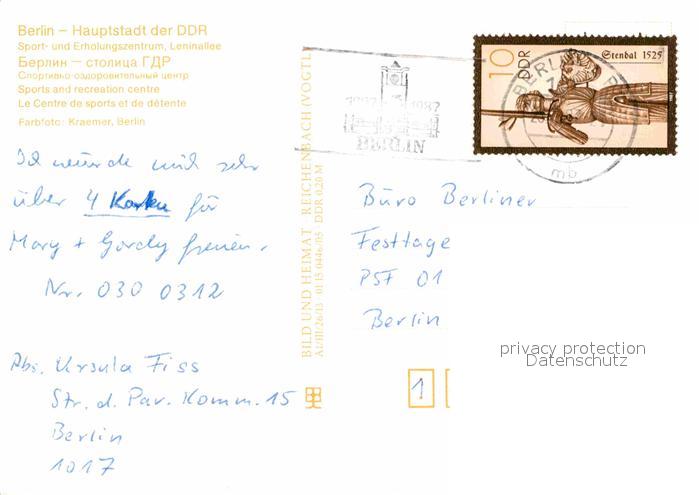 Berlin – Hauptstadt der DDR
Sport- und Erholungszentrum, Leninallee
Берлин – столица ГДР
Спортивно-оздоровительный центр
Sports and recreation centre
Le Centre de sports et de détente
Farbfoto: Kraemer, Berlin
Ich würde mich sehr
über 4 Karten für
Mary + Gordy freuen.
Nr. 030 0312
Abs. Ursula Fiss
Str. d. Par. Komm. 15
Berlin
1017
BILD UND HEIMAT REICHENBACH (VOGTL
A1/III/26/13 01 15 0446/05 DDR 0,20 M
1987
BERLIN
10
DDR
Stendal 1525
BERLIN
mb
Büro Berliner
Festtage
PSF 01
Berlin
1
privacy protection
Datenschutz